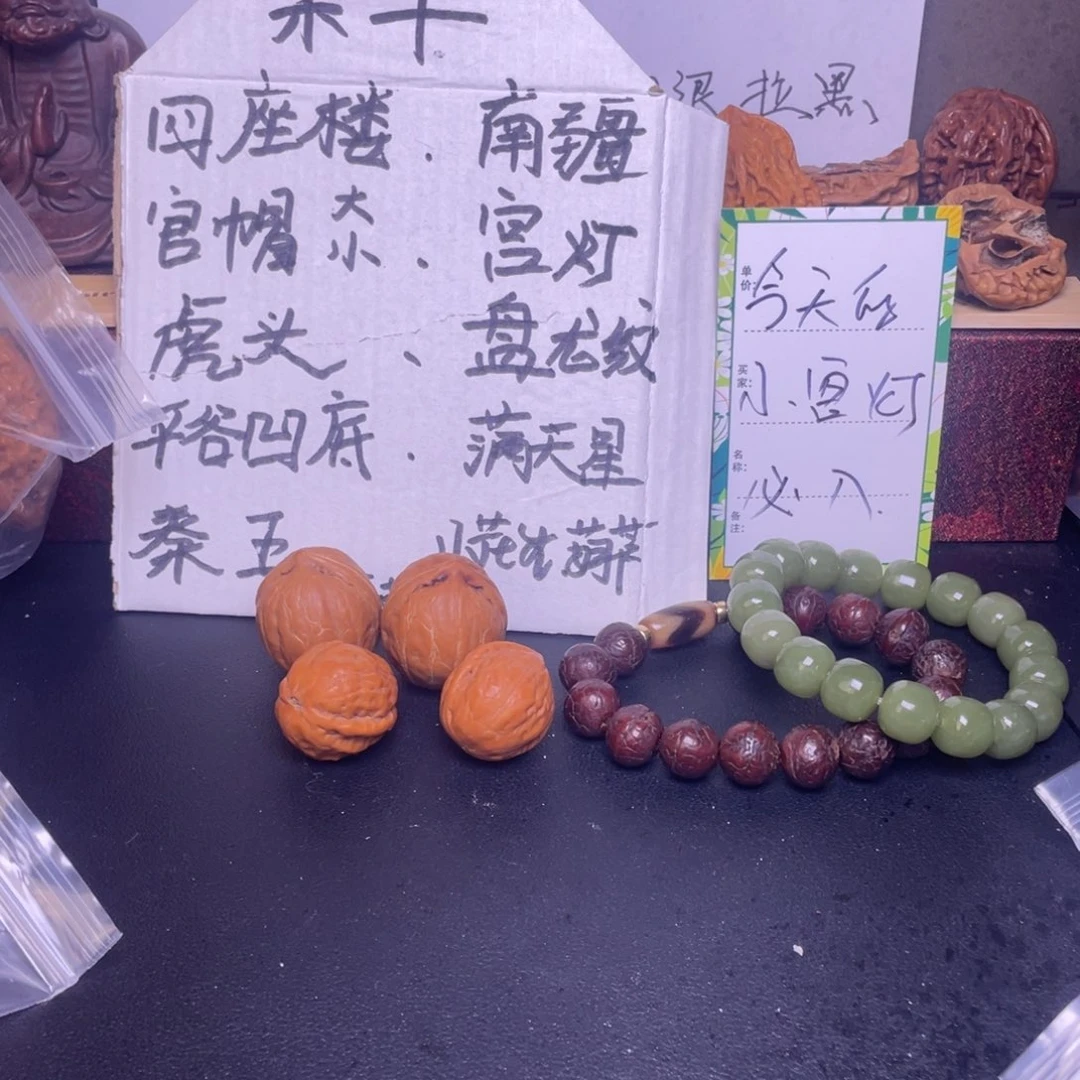 十
四座楼.南疆
官帽大小.宫灯
虎头、盘龙纹
平谷凹底.满天星
秦五
拉黑、
单价:今天的
买家:小宫灯
名称:必入.
备注: